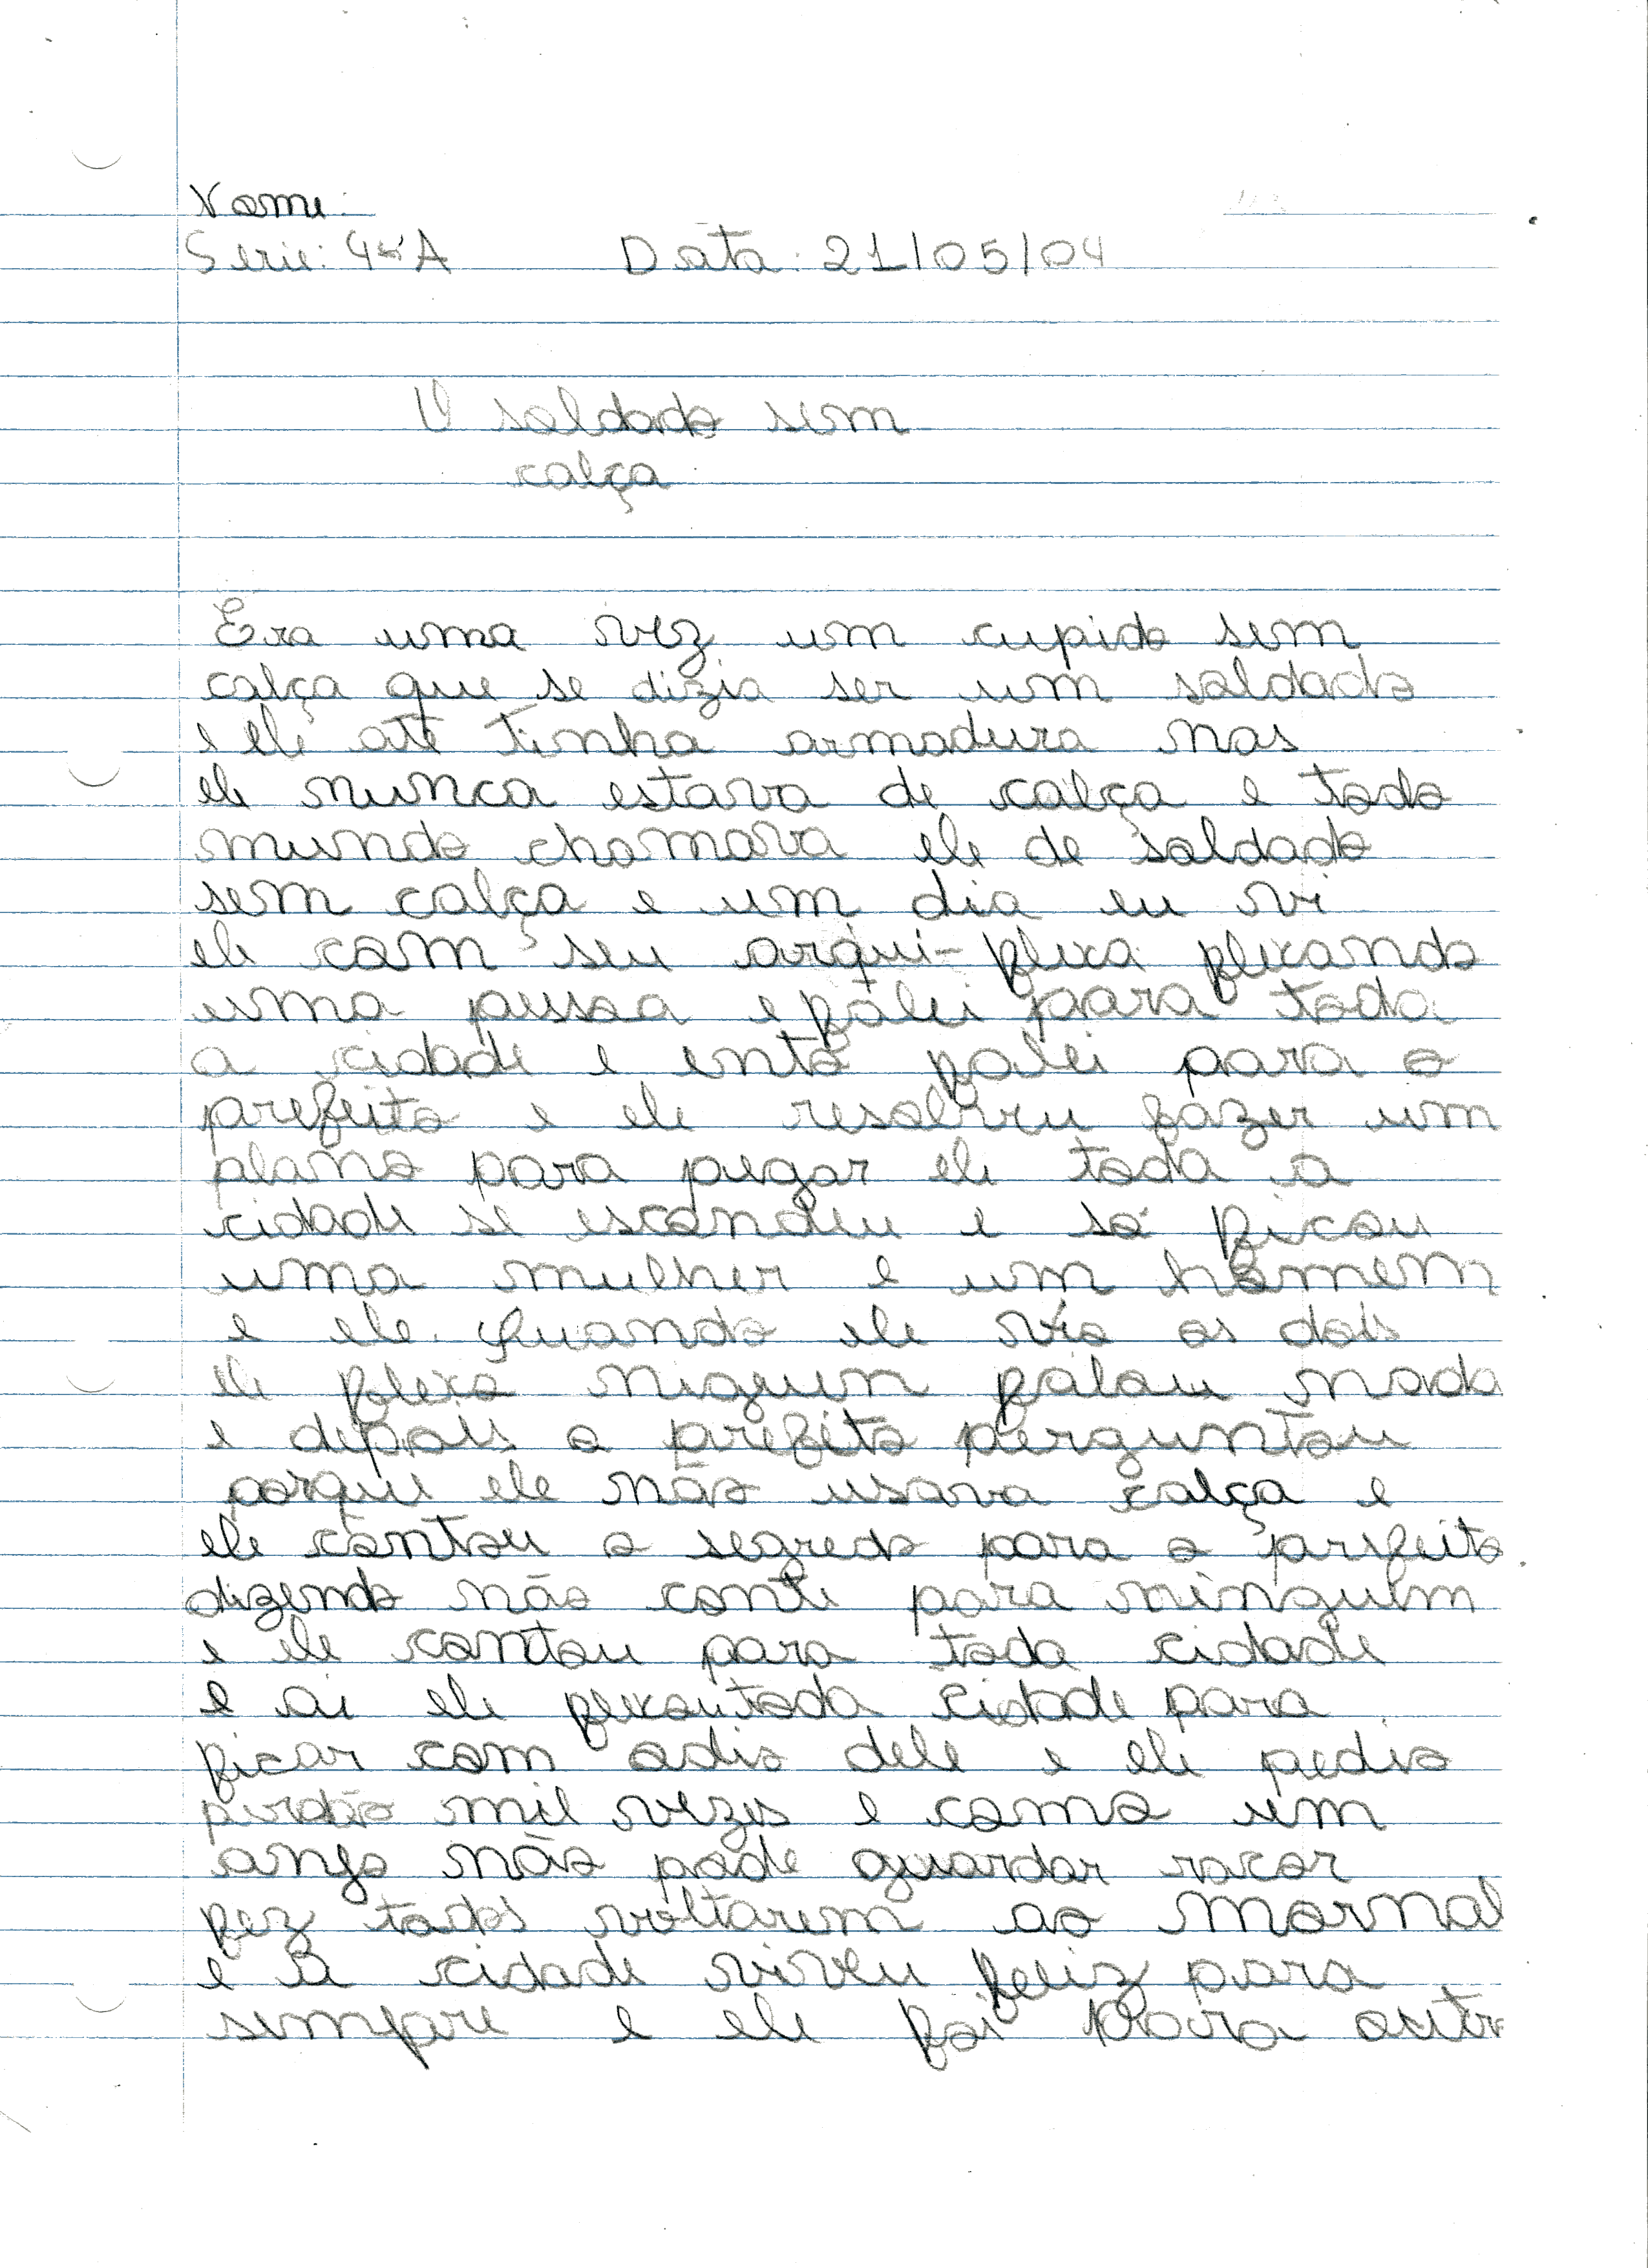 Nome:
Serie: 4ª A Data: 21/05/04
O soldado sem
calça
Era uma vez um cupido sem
calça que se dizia ser um soldado
e ele até tinha armadura mas
ele nunca estava de calça e todo
mundo chamava ele de soldado
sem calça e um dia eu vi
ele com seu arqui-flexa flexando
uma pessoa e falei para toda
a cidade e entã falei para o
prefeito e ele resolveu fazer um
plano para pegar ele toda a
cidade se escondeu e só ficou
uma mulher e um homem
e ele. Quando ele vio os dois
ele flexo niguem falou nada
e depois o prefeito perguntou
porque ele não usava calça e
ele contou o segredo para o prefeito
dizendo não conte para ninguem
e ele contou para toda cidade
e ai ele flexou toda cidade para
ficar com odio dele e ele pedio
perdão mil vezes e como um
anjo não pode guardar racor
fez todos voltarem ao normal
e a cidade viveu feliz para
sempre e ele foi para outr